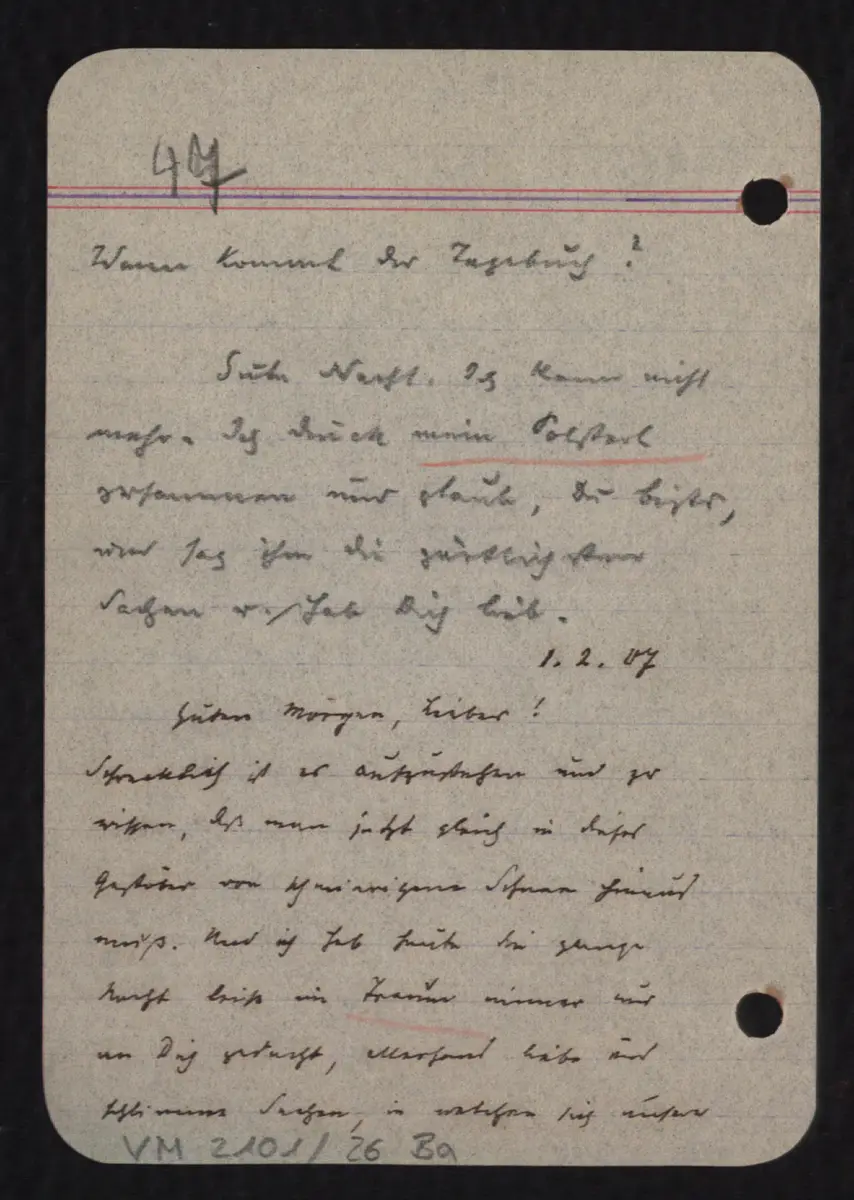 47
Wann kommt der Tagebuch?
Gute Nacht. Ich kann nicht
mehr. Ich drück mein Polsterl
zusammen und glaub, Du bists,
und sag ihm die zärtlichsten
Sachen u. hab Dich lieb.
1. 2. 07
Guten Morgen, Lieber!
Schrecklich ist es aufzustehen und zu
wissen, daß man jetzt gleich in dieses
Gestöber von Schnee hinaus
muß. Und ich hab heute die ganze
Nacht im Traum immer nur
an Dich gedacht, allerhand liebe und
schlimme Sachen, in welchen sich unsere
VM 2101/26 Ba